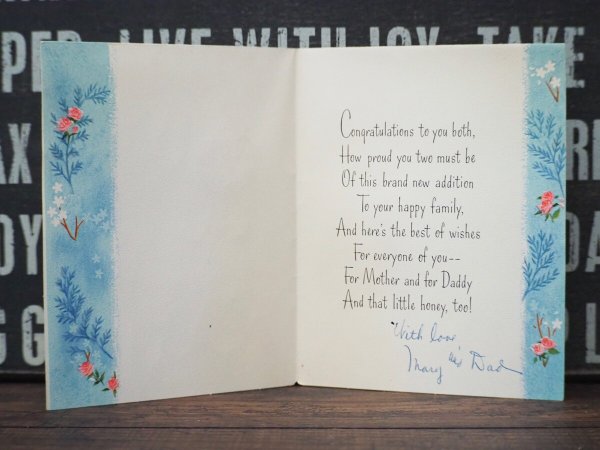 PER LIVE WITH JOY TAKE
AX
Congratulations to you both,
How proud you two must be
Of this brand new addition
To your happy family,
And here's the best of wishes
For everyone of you--
For Mother and for Daddy
And that little honey, too!
With love
Mary & Dad